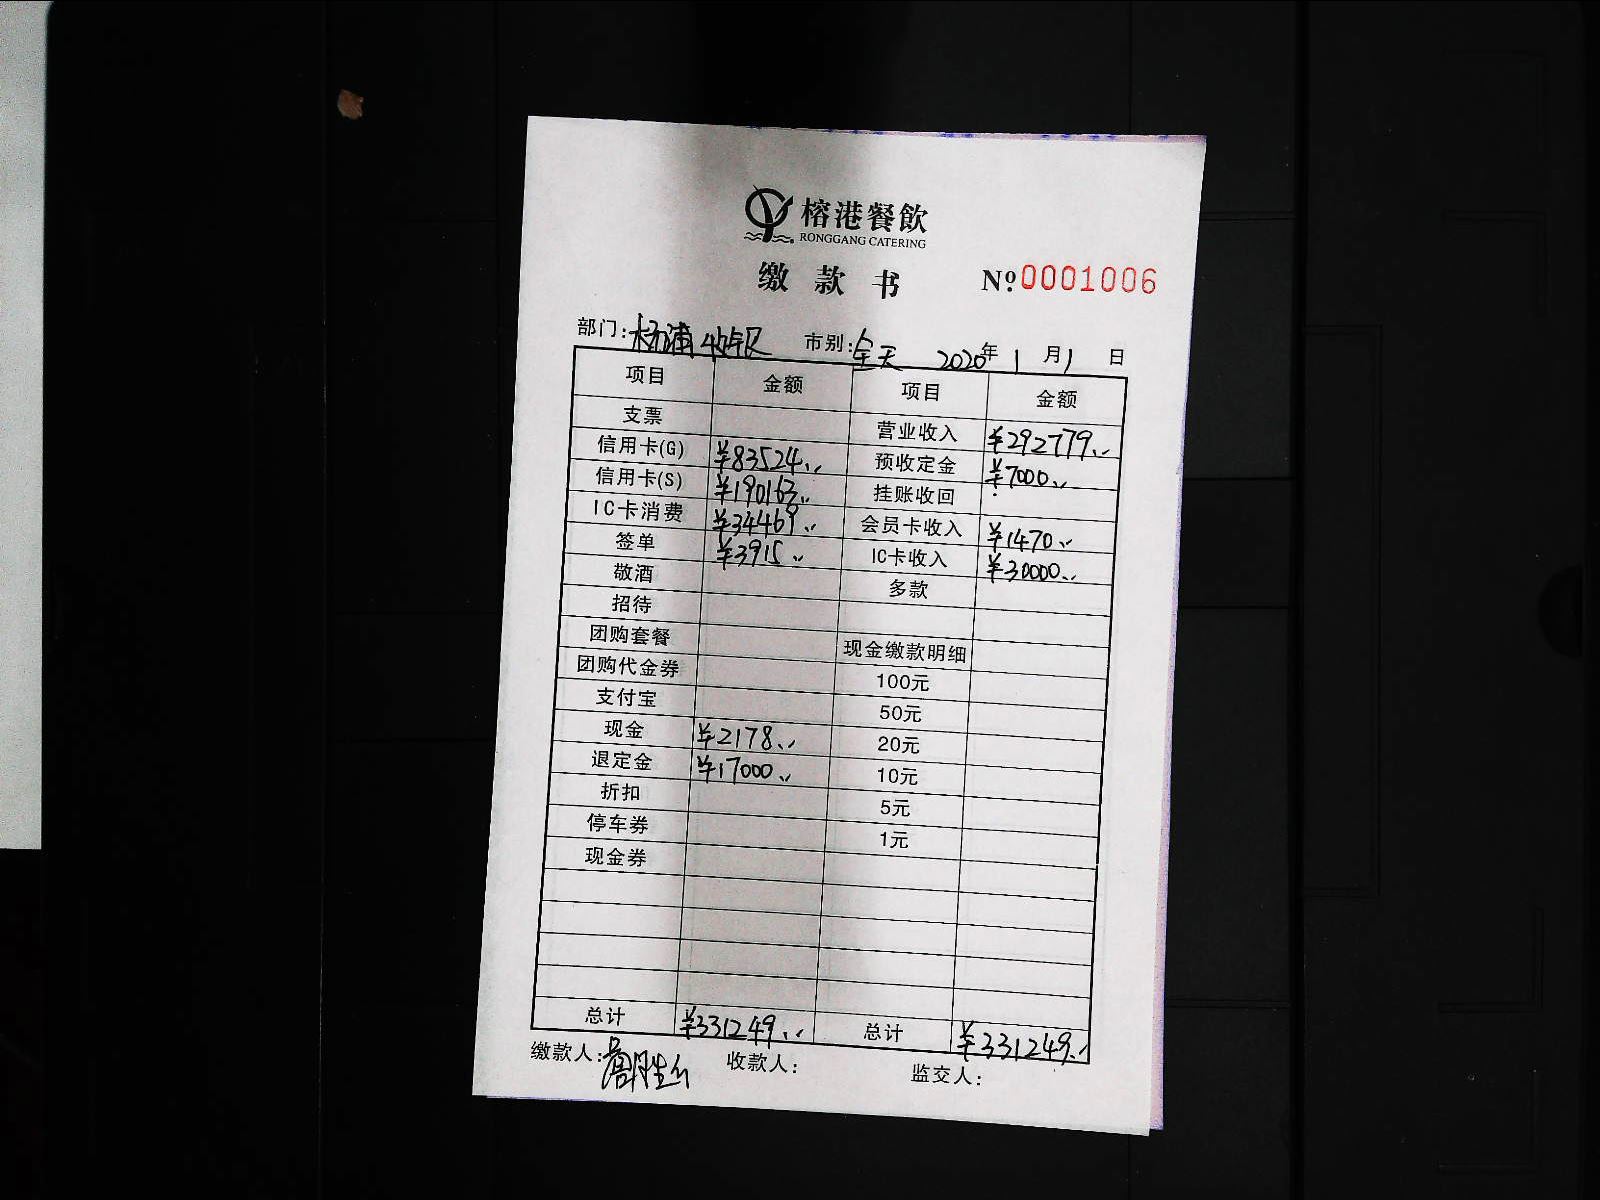 榕港餐飲
RONGGANG CATERING
缴款书 №0001006
部门:杨浦 市别:全天 2020年1月1日
项目 金额 项目 金额
支票 营业收入 ¥292779.
信用卡(G) ¥83524. 预收定金 ¥7000.
信用卡(S) ¥190163. 挂账收回
IC卡消费 ¥34469. 会员卡收入 ¥1470.
签单 ¥3915. IC卡收入 ¥30000.
敬酒 多款
招待
团购套餐 现金缴款明细
团购代金券 100元
支付宝 50元
现金 ¥2178. 20元
退定金 ¥17000. 10元
折扣 5元
停车券 1元
现金券
总计 ¥331249. 总计 ¥331249.
缴款人: 收款人: 监交人: